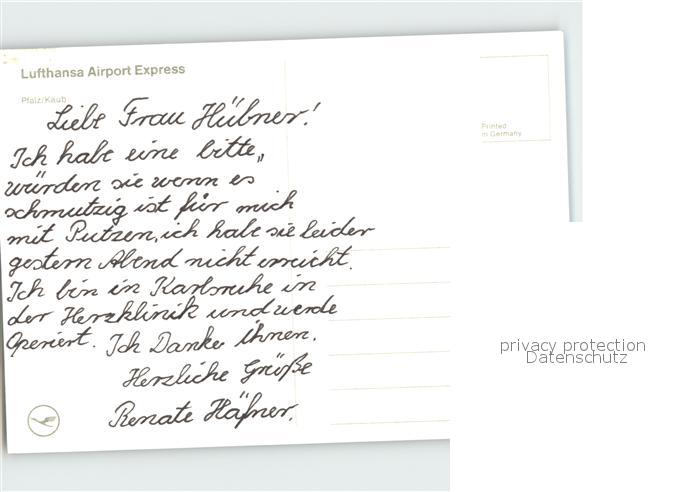 Lufthansa Airport Express
Pfalz/Kaub
Printed
in Germany
Liebe Frau Hübner!
Ich habe eine bitte„
würden sie wenn es
schmutzig ist für mich
mit Putzen, ich habe sie leider
gestern Abend nicht erreicht.
Ich bin in Karlsruhe in
der Herzklinik und werde
Operiert. Ich Danke ihnen.
Herzliche Grüße
Renate Häfner.
privacy protection
Datenschutz